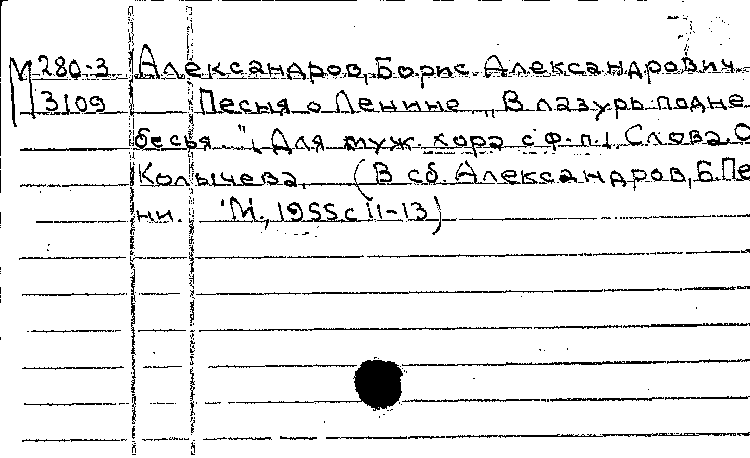 М 280-3 Александров, Борис Александрович
3109 Песня о Ленине „В лазурь подне
бесья". [Для муж. хора с ф.-п.] Слова О
Колычева. (В сб. Александров, Б. Пе
ни. М., 1955 с 11-13)